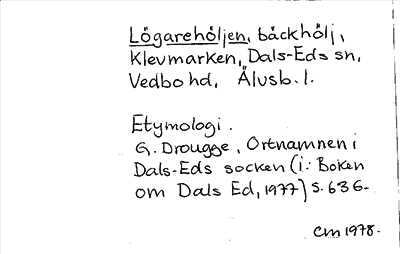 Lögarehöljen, bäckhölj,
Klevmarken, Dals-Eds sn,
Vedbo hd, Älvsb. l.
Etymologi.
G. Drougge, Ortnamnen i
Dals-Eds socken (i: Boken
om Dals Ed, 1977) s. 636-
CM 1978.